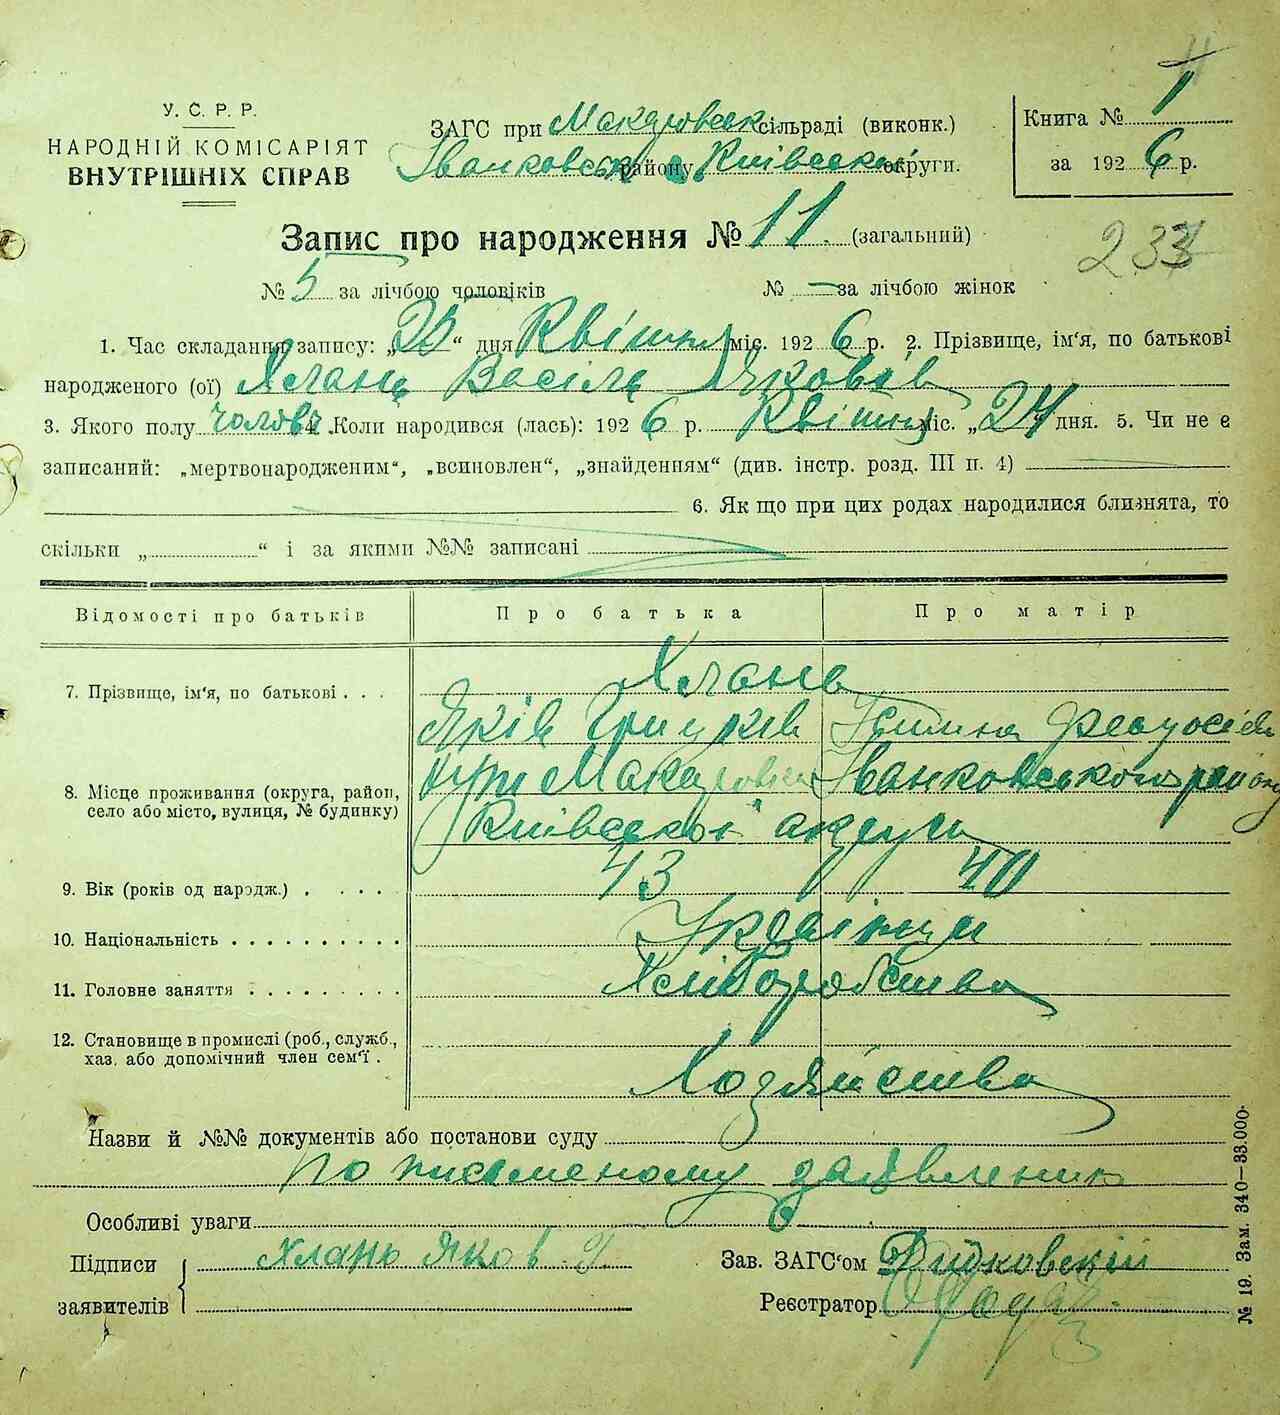 У. С. Р. Р.
НАРОДНІЙ КОМІСАРІЯТ
ВНУТРІШНІХ СПРАВ
ЗАГС при Макаровськ сільраді (виконк.)
Іванковськ району Київської округи.
Книга № 1
за 1926 р.
Запис про народження № 11. (загальний)
233
№ 5 за лічбою чоловіків № — за лічбою жінок
1. Час складання запису: „25“ дня Квітня міс. 1926 р. 2. Прізвище, ім'я, по батькові
народженого (ої) Хлань Васіль Яковів
3. Якого полу чолов. 4. Коли народився (лась): 1926 р. Квітня міс. „24“ дня. 5. Чи не є
записаний: „мертвонародженим“, „всиновлен“, „знайденням“ (див. інстр. розд. III п. 4)
6. Як що при цих родах народилися близнята, то
скільки „ “ і за якими №№ записані
Відомості про батьків Про батька Про матір
7. Прізвище, ім'я, по батькові . . . Хлань
Яків Устина
8. Місце проживання (округа, район, Макаровка Іванковського району
село або місто, вулиця, № будинку) Київської округи
9. Вік (років од народж.) . . . . 43 40
10. Національність . . . . . . . . . . Українці
11. Головне заняття . . . . . . . . . Хліборобства
12. Становище в промислі (роб., служб.,
хаз. або допомічний член сем'ї . Хозяйства
Назви й №№ документів або постанови суду
по письменому заявленню
Особливі уваги
Підписи Хлань Яков Г Зав. ЗАГС'ом Дидковскій
заявителів Реєстратор
№ 19. Зам. 340—33.000.